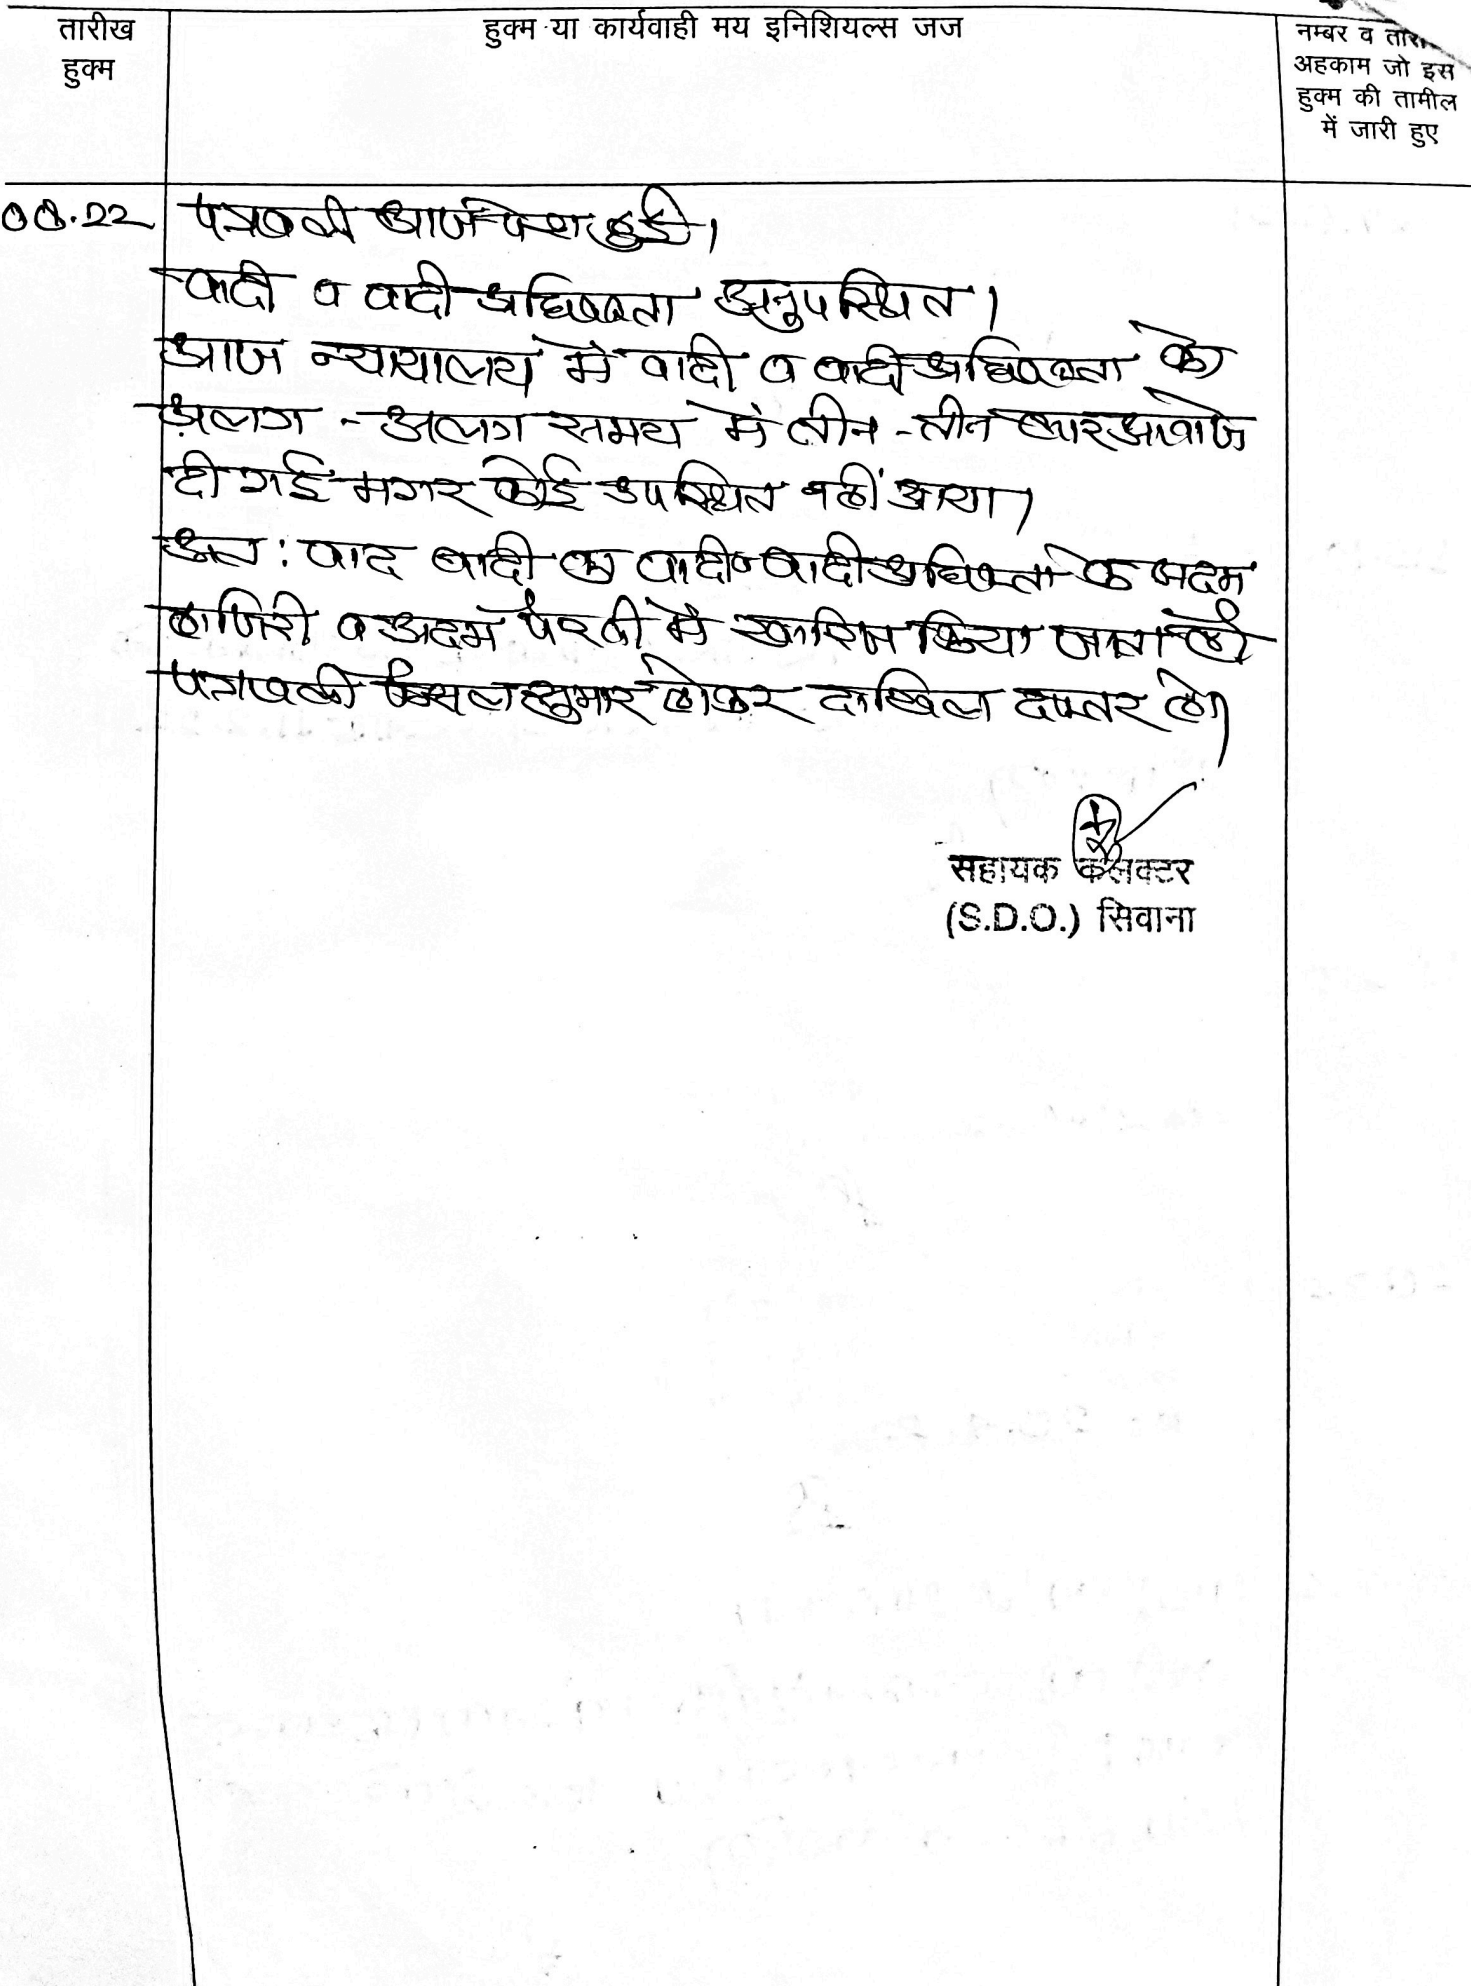 तारीख
हुक्म
हुक्म या कार्यवाही मय इनिशियल्स जज
नम्बर व
अहकाम जो इस
हुक्म की तामील
में जारी हुए
पत्रावली आज पेश हुई।
वादी व वादी अधिवक्ता अनुपस्थित।
आज न्यायालय में वादी व वादी अधिवक्ता को
अलग - अलग समय में तीन - तीन बार आवाजे
दी गई मगर कोई उपस्थित नहीं आया।
अत: वाद वादी का वादी व वादी अधिवक्ता के अदम
हाजिरी व अदम पैरवी में खारिज किया जाता है
पत्रावली फैसल शुमार होकर दाखिल दफ्तर हो।
सहायक कलक्टर
(S.D.O.) सिवाना